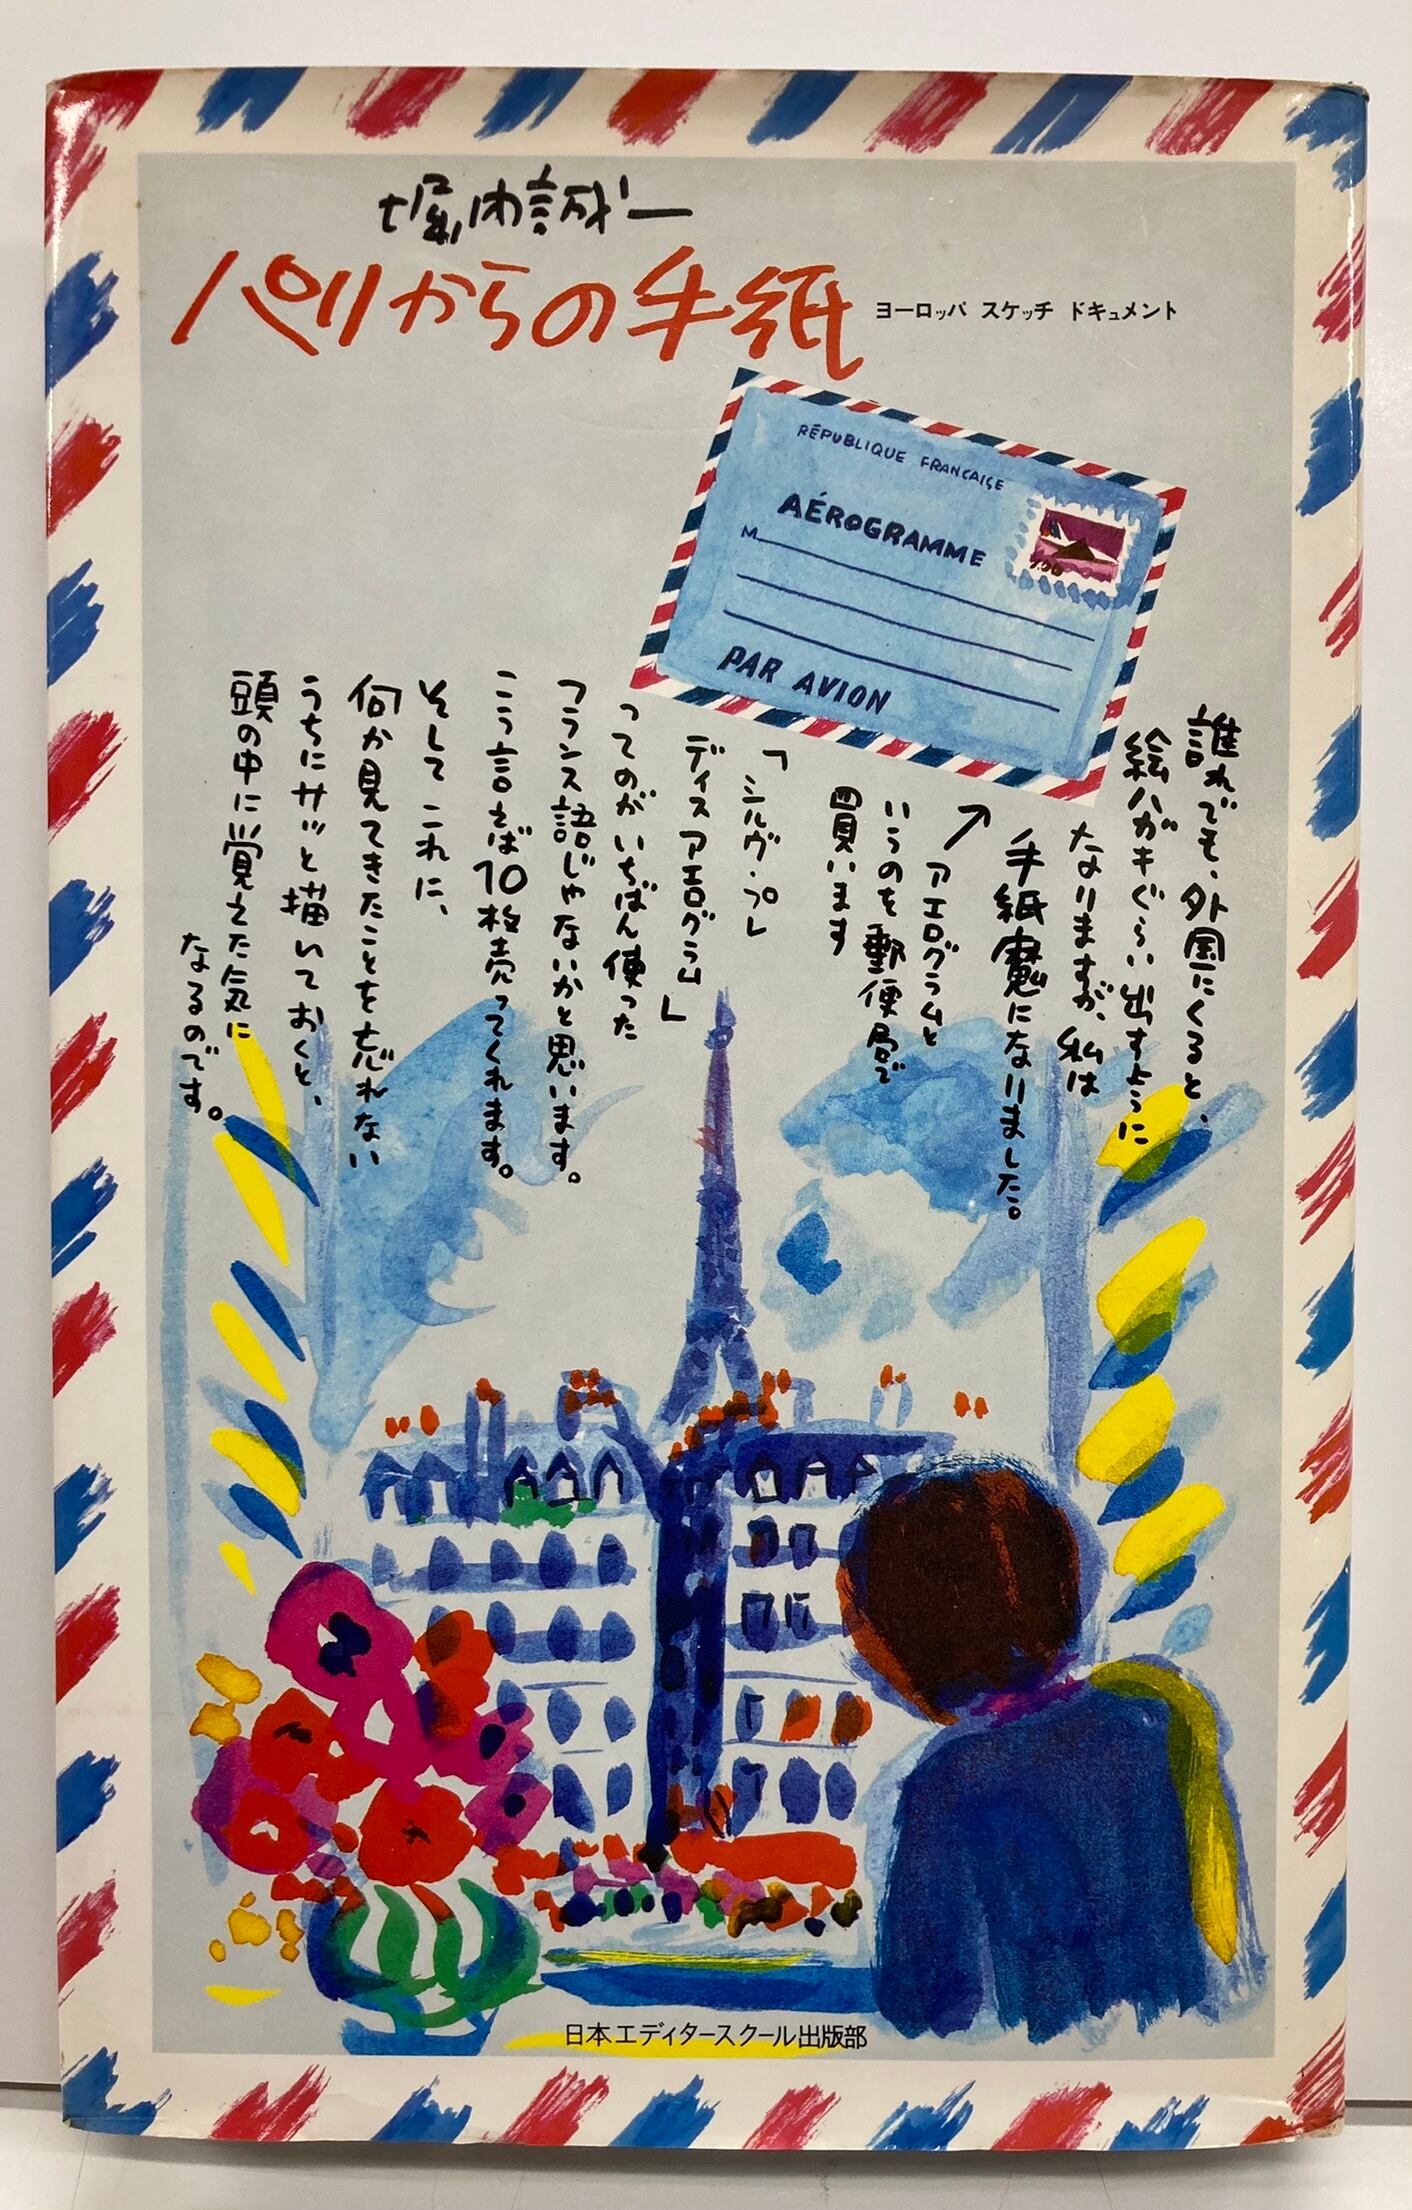 堀内誠一
パリからの手紙
ヨーロッパ スケッチ ドキュメント
RÉPUBLIQUE FRANCAISE
AÉROGRAMME
M
PAR AVION
誰れでも、外国にくると、
絵ハガキぐらい出すように
なりますが、私は
手紙魔になりました。
↗アエログラムと
いうのを郵便局で
買います
「シルヴ・プレ
ディス アエログラム」
ってのがいちばん使った
フランス語じゃないかと思います。
こう言えば10枚売ってくれます。
そしてこれに、
何か見てきたことを忘れない
うちにサッと描いておくと、
頭の中に覚えた気に
なるのです。
日本エディタースクール出版部